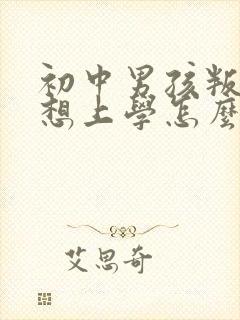 初中男孩叛
想上學怎麼
艾思奇